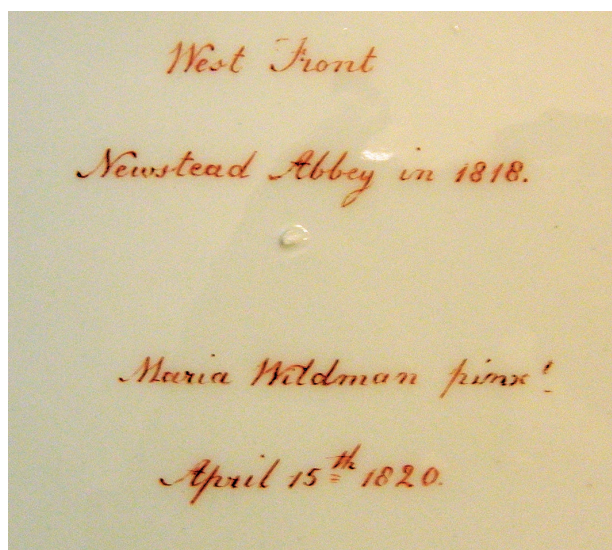 West Front
Newstead Abbey in 1818.
Maria Wildman pinxt
April 15th 1820.